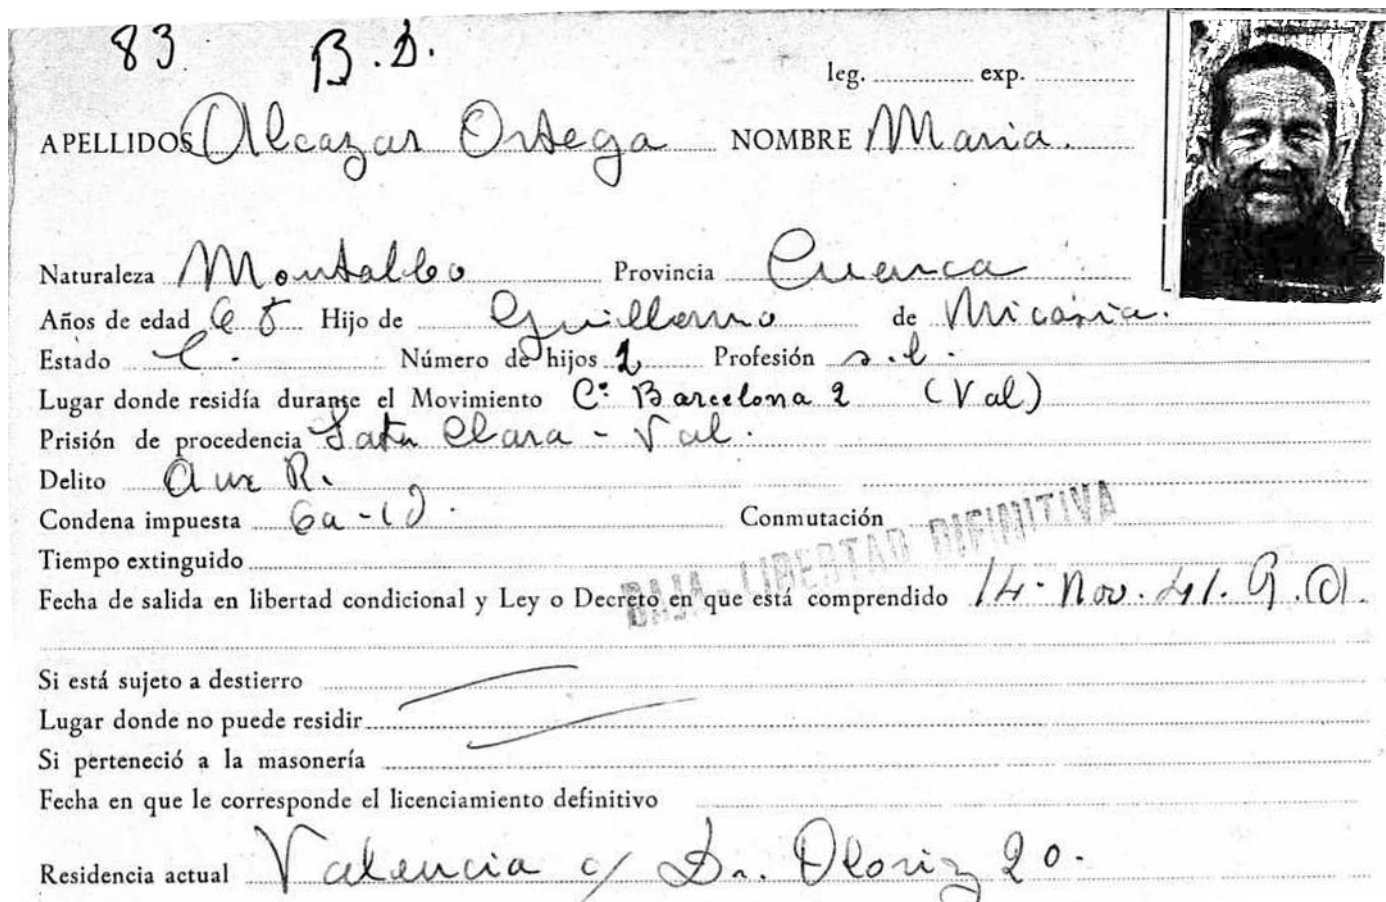 83 B.D.
leg. ............ exp. ............
APELLIDOS Alcazar Ortega NOMBRE Maria.
Naturaleza Montalbo Provincia Cuenca
Años de edad 68 Hijo de Guillermo de Micaria.
Estado Número de hijos 2 Profesión s.l.
Lugar donde residía durante el Movimiento Cº Barcelona 2 (Val)
Prisión de procedencia Clara - Val.
Delito Aux R.
Condena impuesta 6a-1d. Conmutación
Tiempo extinguido
BAJA - LIBERTAD DIFINITIVA
Fecha de salida en libertad condicional y Ley o Decreto en que está comprendido 14-Nov.41.
Si está sujeto a destierro
Lugar donde no puede residir
Si perteneció a la masonería
Fecha en que le corresponde el licenciamiento definitivo
Residencia actual Valencia c/ Dr. Oloriz 20.